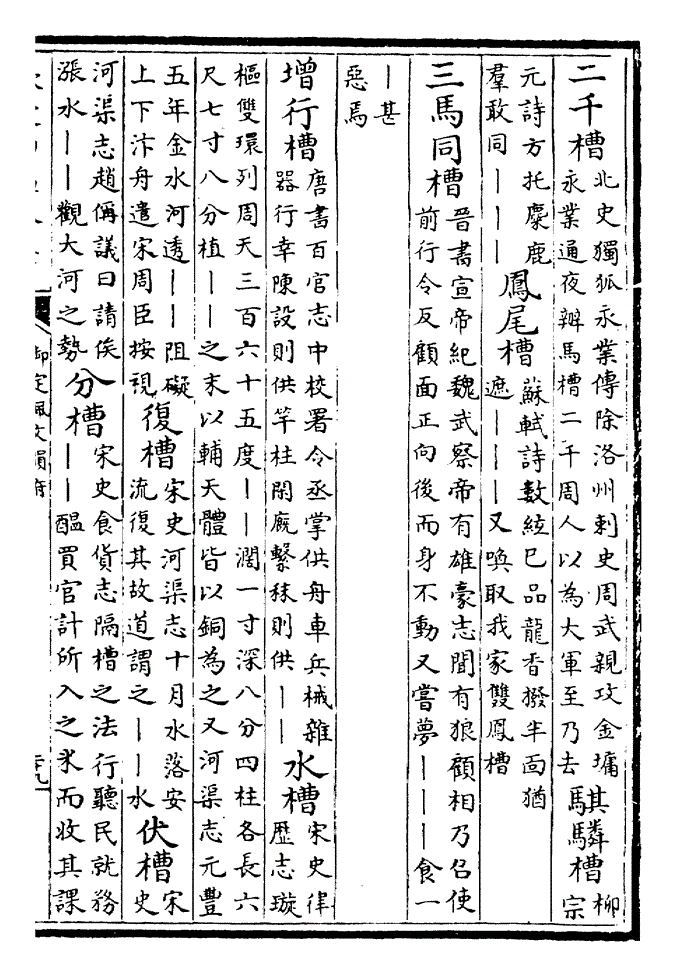 二千槽
北史獨狐永業傳除洛州刺史周武親攻金墉
永業通夜辦馬槽二千周人以為大軍至乃去
騏驎槽
柳
宗
元詩方托麋鹿
羣敢同｜｜｜
鳳尾槽
蘇軾詩數絃已品龍香撥半面猶
遮｜｜｜又喚取我家雙鳳槽
三馬同槽
晉書宣帝紀魏武察帝有雄豪志聞有狼顧相乃召使
前行令反顧面正向後而身不動又嘗夢｜｜｜食一
｜甚
惡焉
增行槽
唐書百官志中校署令丞掌供舟車兵械雜
器行幸陳設則供竿柱閑廐繫秣則供｜｜
水槽
宋史律
歷志璇
樞雙環列周天三百六十五度｜｜濶一寸深八分四柱各長六
尺七寸八分植｜｜之末以輔天體皆以銅為之又河渠志元豐
五年金水河透｜｜阻礙
上下汴舟遣宋周臣按視
復槽
宋史河渠志十月水落安
流復其故道謂之｜｜水
伏槽
宋
史
河渠志趙偁議曰請俟
漲水｜｜觀大河之勢
分槽
宋史食貨志隔槽之法行聽民就務
｜｜醞買官計所入之米而收其課
御定佩文韻府